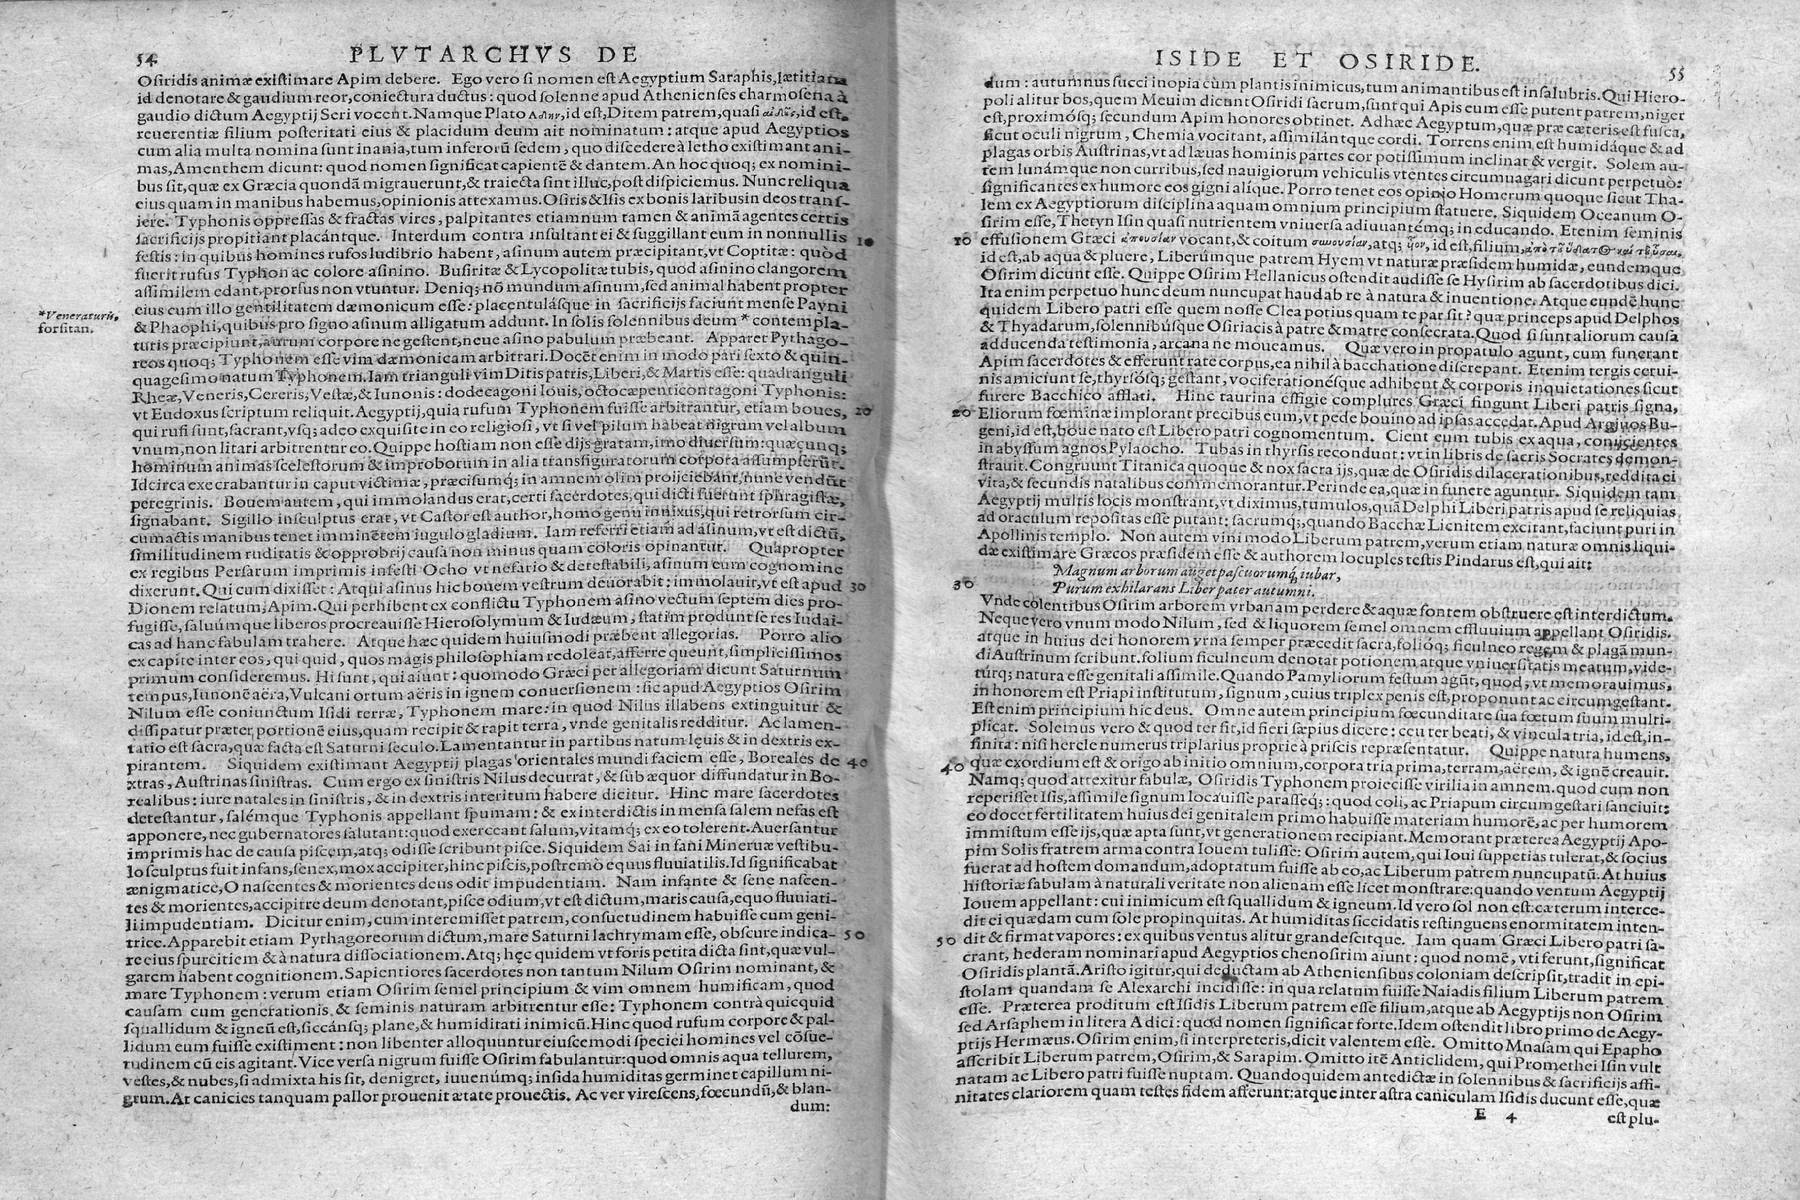 54 PLVTARCHVS DE
Osiridis animæ existimare Apim debere. Ego vero si nomen est Aegyptium Saraphis, lætitiam
id denotare & gaudium reor, coniectura ductus: quod solenne apud Athenienses charmosena à
gaudio dictum Aegyptij Seri vocent. Namque Plato id est, Ditem patrem, quasi id est,
reuerentiæ filium posteritati eius & placidum deum ait nominatum: atque apud Aegyptios
cum alia multa nomina sunt inania, tum inferorũ sedem, quo discedere à letho existimant ani-
mas, Amenthem dicunt: quod nomen significat capientẽ & dantem. An hoc quoq; ex nomini-
bus sit, quæ ex Græcia quondã migrauerunt, & traiecta sint illuc, post dispiciemus. Nunc reliqua
eius quam in manibus habemus, opinionis attexamus. Osiris & Isis ex bonis laribus in deos trans-
iere. Typhonis oppressas & fractas vires, palpitantes etiamnum tamen & animã agentes certis
sacrificijs propitiant placántque. Interdum contra insultant ei & suggillant eum in nonnullis 10
festis: in quibus homines rufos ludibrio habent, asinum autem præcipitant, vt Coptitæ: quòd
fuerit rufus Typhon ac colore asinino. Busiritæ & Lycopolitæ tubis, quod asinino clangorem
assimilem edant, prorsus non vtuntur. Deniq; nõ mundum asinum, sed animal habent propter
eius cum illo gentilitatem dæmonicum esse: placentulásque in sacrificijs faciunt mense Payni
*Veneraturis, forsitan.
& Phaophi, quibus pro signo asinum alligatum addunt. In solis solennibus deum * contempla-
turis præcipiunt, aurum corpore ne gestent, neue asino pabulum præbeant. Apparet Pythago-
reos quoq; Typhonem esse vim dæmonicam arbitrari. Docẽt enim in modo pari sexto & quin-
quagesimo natum Typhonem. Iam trianguli vim Ditis patris, Liberi, & Martis esse: quadranguli
Rheæ, Veneris, Cereris, Vestæ, & Iunonis: dodecagoni Iouis, octocæpenticontagoni Typhonis:
vt Eudoxus scriptum reliquit. Aegyptij, quia rufum Typhonem fuisse arbitrantur, etiam boues, 20
qui rufi sunt, sacrant, vsq; adeo exquisite in eo religiosi, vt si vel pilum habeat nigrum vel album
vnum, non litari arbitrentur eo. Quippe hostiam non esse dijs gratam, imo diuersum: quæcunq;
hominum animas scelestorum & improborum in alia transfiguratorum corpora assumpserũt.
Idcirca execrabantur in caput victimæ, præcisumq́; in amnem olim proijciebant, nunc vendũt
peregrinis. Bouem autem, qui immolandus erat, certi sacerdotes, qui dicti fuerunt sphragistæ,
signabant. Sigillo insculptus erat, vt Castor est author, homo genu innixus, qui retrorsum cir-
cumactis manibus tenet imminẽtem iugulo gladium. Iam referri etiam ad asinum, vt est dictũ,
similitudinem ruditatis & opprobrij causa non minus quam coloris opinantur. Quapropter
ex regibus Persarum imprimis infesti Ocho vt nefario & detestabili, asinum eum cognomine
dixerunt. Qui cum dixisset: Atqui asinus hic bouem vestrum deuorabit: immolauit, vt est apud 30
Dionem relatum, Apim. Qui perhibent ex conflictu Typhonem asino vectum septem dies pro-
fugisse, saluúmque liberos procreauisse Hierosolymum & Iudæum, statim produnt se res Iudai-
cas ad hanc fabulam trahere. Atque hæc quidem huiusmodi præbent allegorias. Porro alio
ex capite inter eos, qui quid, quos magis philosophiam redoleat, afferre queunt, simplicissimos
primum consideremus. Hi sunt, qui aiunt: quomodo Græci per allegoriam dicunt Saturnum
tempus, Iunonẽ aëra, Vulcani ortum aëris in ignem conuersionem: sic apud Aegyptios Osirim
Nilum esse coniunctum Isidi terræ, Typhonem mare: in quod Nilus illabens extinguitur &
dissipatur præter portionẽ eius, quam recipit & rapit terra, vnde genitalis redditur. Ac lamen-
tatio est sacra, quæ facta est Saturni seculo. Lamentantur in partibus natum leuis & in dextris ex-
pirantem. Siquidem existimant Aegyptij plagas orientales mundi faciem esse, Boreales de 40
xtras, Austrinas sinistras. Cum ergo ex sinistris Nilus decurrat, & sub æquor diffundatur in Bo-
realibus: iure natales in sinistris, & in dextris interitum habere dicitur. Hinc mare sacerdotes
detestantur, salémque Typhonis appellant spumam: & ex interdictis in mensa salem nefas est
apponere, nec gubernatores salutant: quod exerceant salum, vitamq́; ex eo tolerent. Auersantur
imprimis hac de causa piscem, atq; odisse scribunt pisce. Siquidem Sai in fani Mineruæ vestibu-
lo sculptus fuit infans, senex, mox accipiter, hinc piscis, postremò equus fluuiatilis. Id significabat
ænigmatice, O nascentes & morientes deus odit impudentiam. Nam infante & sene nascen-
tes & morientes, accipitre deum denotant, pisce odium, vt est dictum, maris causa, equo fluuiati-
li impudentiam. Dicitur enim, cum interemisset patrem, consuetudinem habuisse cum geni-
trice. Apparebit etiam Pythagoreorum dictum, mare Saturni lachrymam esse, obscure indica- 50
re eius spurcitiem & à natura dissociationem. Atq; hęc quidem vt foris petita dicta sint, quæ vul-
garem habent cognitionem. Sapientiores sacerdotes non tantum Nilum Osirim nominant, &
mare Typhonem: verum etiam Osirim semel principium & vim omnem humificam, quod
causam cum generationis, & seminis naturam arbitrentur esse: Typhonem contrà quicquid
squallidum & igneũ est, siccánsq; plane, & humiditati inimicũ. Hinc quod rufum corpore & pal-
lidum eum fuisse existiment: non libenter alloquuntur eiuscemodi speciei homines vel cõsue-
tudinem cũ eis agitant. Vice versa nigrum fuisse Osirim fabulantur: quod omnis aqua tellurem,
vestes, & nubes, si admixta his sit, denigret, iuuenúmq; insida humiditas germinet capillum ni-
grum. At canicies tanquam pallor prouenit ætate prouectis. Ac ver virescens, fœcundũ, & blan-
dum:
ISIDE ET OSIRIDE. 55
dum: autumnus succi inopia cùm plantis inimicus, tum animantibus est insalubris. Qui Hiero-
poli alitur bos, quem Meuim dicunt Osiridi sacrum, sunt qui Apis eum esse putent patrem, niger
est, proximósq; secundum Apim honores obtinet. Adhæc Aegyptum, quæ præ cæteris est fusca,
sicut oculi nigrum, Chemia vocitant, assimilántque cordi. Torrens enim est humidáque & ad
plagas orbis Austrinas, vt ad læuas hominis partes cor potissimum inclinat & vergit. Solem au-
tem lunámque non curribus, sed nauigiorum vehiculis vtentes circumnagari dicunt perpetuo:
significantes ex humore eos gigni alique. Porro tenet eos opinio Homerum quoque sicut Tha-
lem ex Aegyptiorum disciplina aquam omnium principium statuere. Siquidem Oceanum O-
sirim esse, Thetyn Isin quasi nutrientem vniuersa adiuuantẽmq; in educando. Etenim seminis
10 effusionem Græci ἀπουσίαν vocant, & coitum συνουσίαν, atq; id est, filium,
id est, ab aqua & pluere, Liberúmque patrem Hyem vt naturæ præsidem humidæ, eundemque
Osirim dicunt esse. Quippe Osirim Hellanicus ostendit audisse se Hysirim ab sacerdotibus dici.
Ita enim perpetuo hunc deum nuncupat haud ab re à natura & inuentione. Atque eundẽ hunc
quidem Libero patri esse quem nosse Clea potius quam te par sit? quæ princeps apud Delphos
& Thyadarum, solennibúsque Osiriacis à patre & matre consecrata. Quod si sunt aliorum causa
adducenda testimonia, arcana ne moueamus. Quæ vero in propatulo agunt, cum funerant
Apim sacerdotes & efferunt rate corpus, ea nihil à bacchatione discrepant. Etenim tergis cerui-
nis amiciunt se, thyrsósq; gestant, vociferationésque adhibent & corporis inquietationes sicut
furere Bacchico afflati. Hinc taurina effigie complures Græci fingunt Liberi patris signa,
20 Eliorum fœminæ implorant precibus eum, vt pede bouino ad ipsas accedat. Apud Argiuos Bu-
geni, id est, boue nato est Libero patri cognomentum. Cient eum tubis ex aqua, conijcientes
in abyssum agnos Pylaocho. Tubas in thyrsis recondunt: vt in libris de sacris Socrates demon-
strauit. Congruunt Titanica quoque & nox sacra ijs, quæ de Osiridis dilacerationibus, reddita ei
vita, & secundis natalibus commemorantur. Perinde ea, quæ in funere aguntur. Siquidem tam
Aegyptij multis locis monstrant, vt diximus, tumulos, quã Delphi Liberi patris apud se reliquias
ad oraculum repositas esse putant: sacrumq;, quando Bacchæ Licnitem excitant, faciunt puri in
Apollinis templo. Non autem vini modo Liberum patrem, verum etiam naturæ omnis liqui-
dæ existimare Græcos præsidem esse & authorem locuples testis Pindarus est, qui ait:
Magnum arborum auget pascuorumq́; iubar,
30 Purum exhilarans Liber pater autumni.
Vnde colentibus Osirim arborem vrbanam perdere & aquæ fontem obstruere est interdictum.
Neque vero vnum modo Nilum, sed & liquorem semel omnem effluuium appellant Osiridis.
atque in huius dei honorem vrna semper præcedit sacra, folióq; ficulneo regem & plagã mun-
di Austrinum scribunt. folium ficulneum denotat potionem atque vniuersitatis meatum, vide-
túrq; natura esse genitali assimile. Quando Pamyliorum festum agũt, quod, vt memorauimus,
in honorem est Priapi institutum, signum, cuius triplex penis est, proponunt ac circumgestant.
Est enim principium hic deus. Omne autem principium fœcunditate sua fœtum suum multi-
plicat. Solemus vero & quod ter sit, id fieri sæpius dicere: ceu ter beati, & vincula tria, id est, in-
finita: nisi hercle numerus triplarius proprie à priscis repræsentatur. Quippe natura humens,
40 quæ exordium est & origo ab initio omnium, corpora tria prima, terram, aërem, & ignẽ creauit.
Namq; quod attexitur fabulæ, Osiridis Typhonem proiecisse virilia in amnem. quod cum non
reperisset Isis, assimile signum locauisse parasseq́;: quod coli, ac Priapum circumgestari sanciuit:
eo docet fertilitatem huius dei genitalem primo habuisse materiam humorẽ, ac per humorem
immistum esse ijs, quæ apta sunt, vt generationem recipiant. Memorant præterea Aegyptij Apo-
pim Solis fratrem arma contra Iouem tulisse: Osirim autem, qui Ioui suppetias tulerat, & socius
fuerat ad hostem domandum, adoptatum fuisse ab eo, ac Liberum patrem nuncupatũ. At huius
historiæ fabulam à naturali veritate non alienam esse licet monstrare: quando ventum Aegyptij
Iouem appellant: cui inimicum est squallidum & igneum. Id vero sol non est: cæterum interce-
dit ei quædam cum sole propinquitas. At humiditas siccidatis restinguens enormitatem inten-
50 dit & firmat vapores: ex quibus ventus alitur grandescitque. Iam quam Græci Libero patri sa-
crant, hederam nominari apud Aegyptios chenosirim aiunt: quod nomẽ, vti ferunt, significat
Osiridis plantã. Aristo igitur, qui deductam ab Atheniensibus coloniam descripsit, tradit in epi-
stolam quandam se Alexarchi incidisse: in qua relatum fuisse Naiadis filium Liberum patrem
esse. Præterea proditum est Isidis Liberum patrem esse filium, atque ab Aegyptijs non Osirim
sed Arsaphem in litera A dici: quod nomen significat forte. Idem ostendit libro primo de Aegy-
ptijs Hermæus. Osirim enim, si interpreteris, dicit valentem esse. Omitto Mnasam qui Epapho
asseribit Liberum patrem, Osirim, & Sarapim. Omitto itẽ Anticlidem, qui Promethei Isin vult
natam ac Libero patri fuisse nuptam. Quandoquidem antedictæ in solennibus & sacrificijs affi-
nitates clariorem quam testes fidem afferunt: atque inter astra caniculam Isidis ducunt esse, quæ
E 4 est plu-